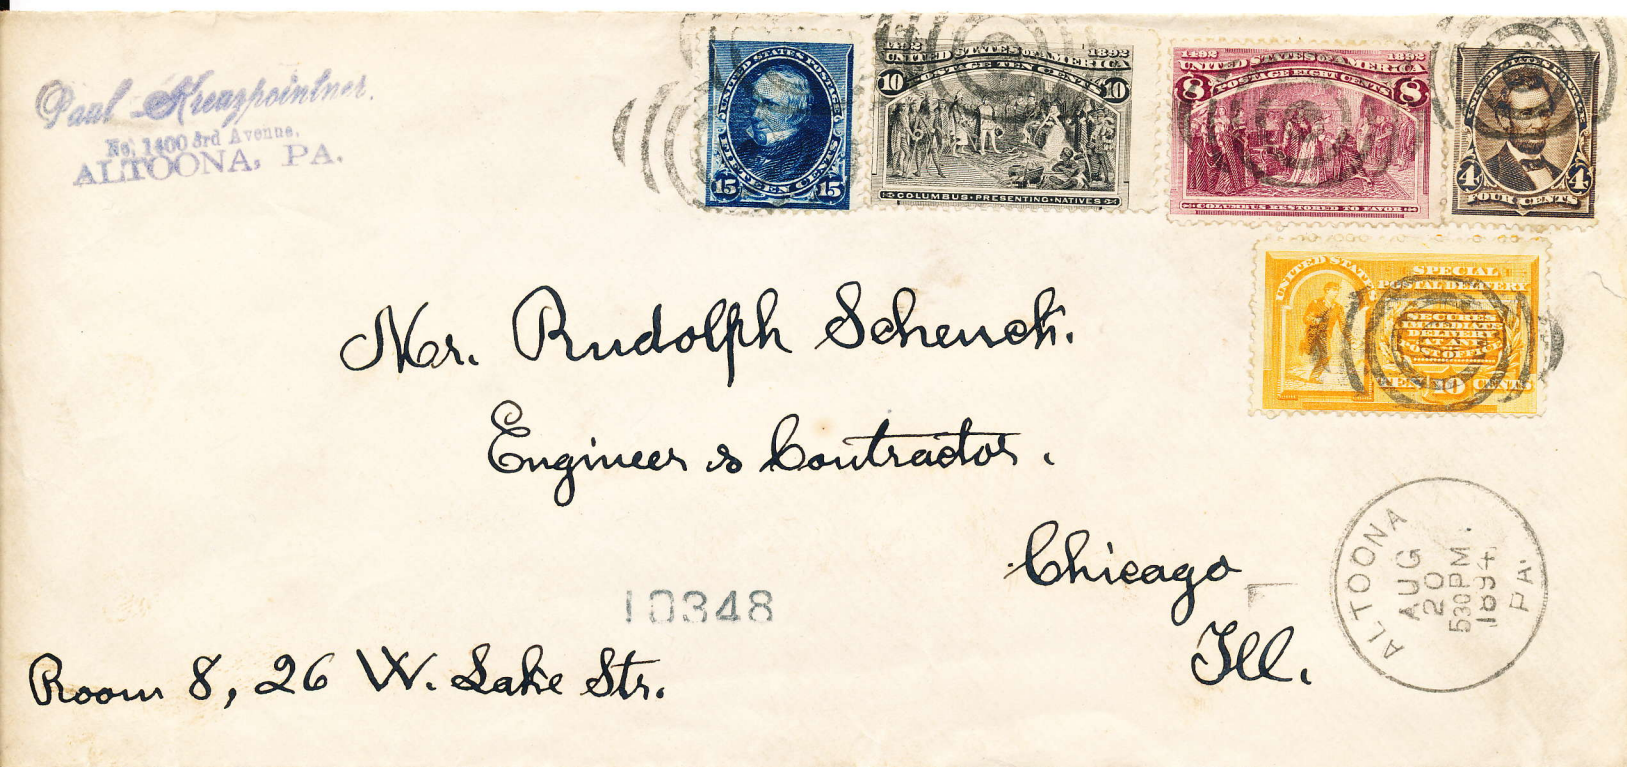 Paul Kreuzpointner.
No. 1400 3rd Avenue,
ALTOONA, PA.
UNITED STATES POSTAGE
15 15
FIFTEEN CENTS
1492 1892
UNITED STATES OF AMERICA
POSTAGE TEN CENTS
10 10
COLUMBUS PRESENTING NATIVES
1492 1892
UNITED STATES OF AMERICA
POSTAGE EIGHT CENTS
8 8
COLUMBUS RESTORED TO FAVOR
UNITED STATES POSTAGE
4 4
FOUR CENTS
UNITED STATES
SPECIAL
POSTAL DELIVERY
SECURES
IMMEDIATE
DELIVERY
AT ANY
POST OFFICE
TEN 10 CENTS
Mr. Rudolph Scheuch.
Engineer & Contractor.
Chicago
Ill.
10348
Room 8, 26 W. Lake Str.
ALTOONA
AUG
20
530PM
1894
PA.